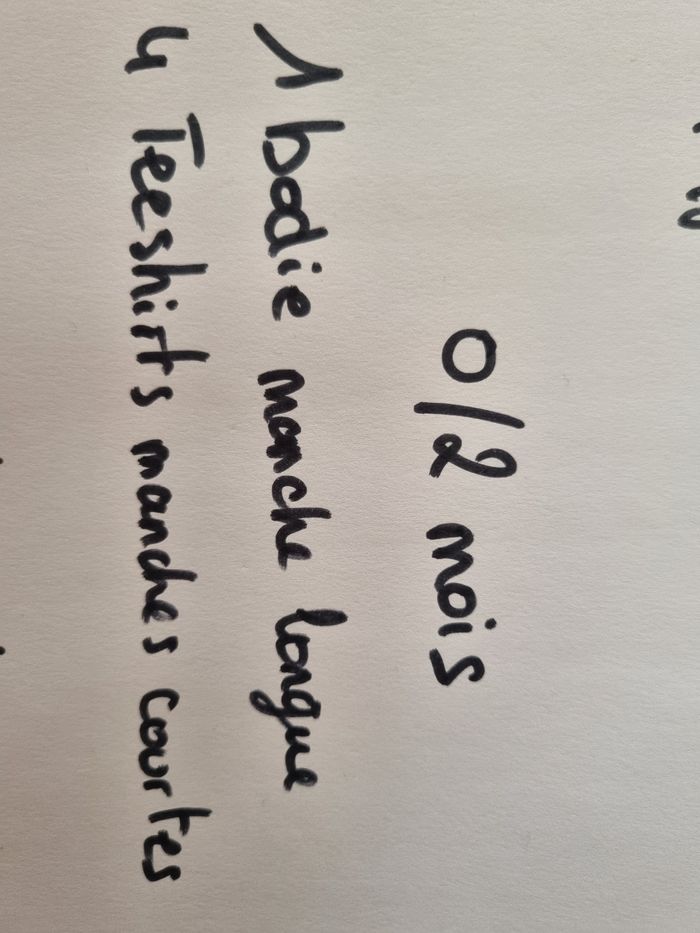 0/2 mois
1 bodie manche longue
4 Teeshirts manches courtes